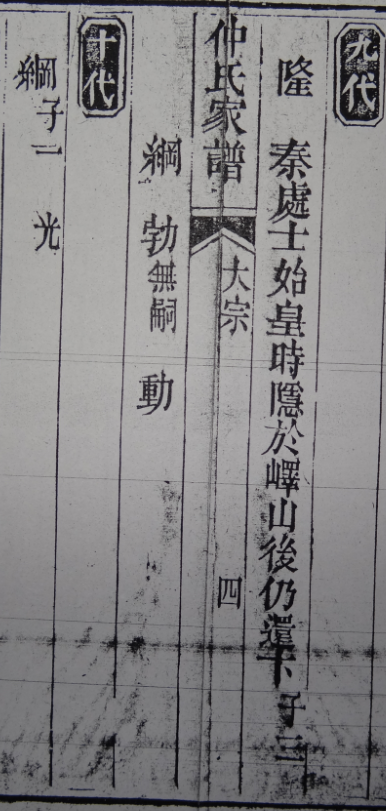 九代
隆 秦處士始皇時隱於嶧山後仍還卞 子三
仲氏家譜 大宗 四
綱 勃無嗣 動
十代
綱子一 光